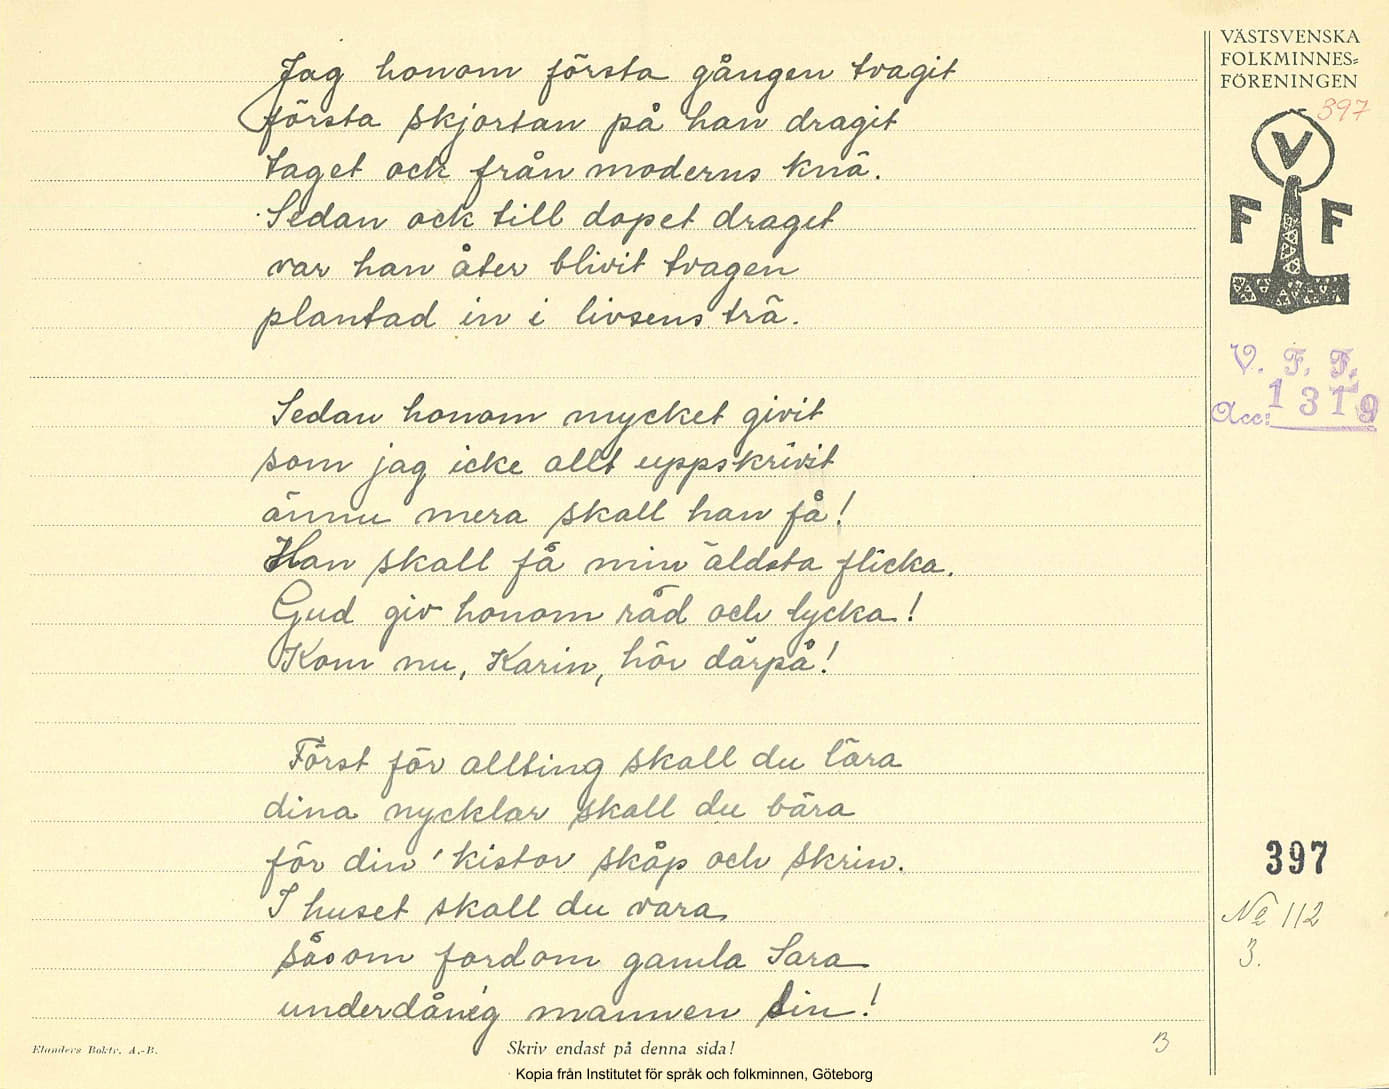 Jag honom första gången tvagit
första skjortan på han dragit
taget ock från moderns knä.
Sedan ock till dopet draget
var han åter blivit tvagen
plantad in i livsens trä.
Sedan honom mycket givit
som jag icke allt uppskrivit
ännu mera skall han få!
Han skall få min äldsta flicka.
Gud giv honom råd och lycka!
Kom nu, Karin, hör därpå!
Först för allting skall du lära
dina nycklar skall du bära
för din' kistor skåp och skrin.
I huset skall du vara
såsom fordom gamla Sara
underdånig mannen sin!
VÄSTSVENSKA
FOLKMINNES=
FÖRENINGEN
397
V
F F
V. F. F.
Acc: 1319
397
No 112
3.
Elanders Boktr. A.-B.
Skriv endast på denna sida!
B
Kopia från Institutet för språk och folkminnen, Göteborg